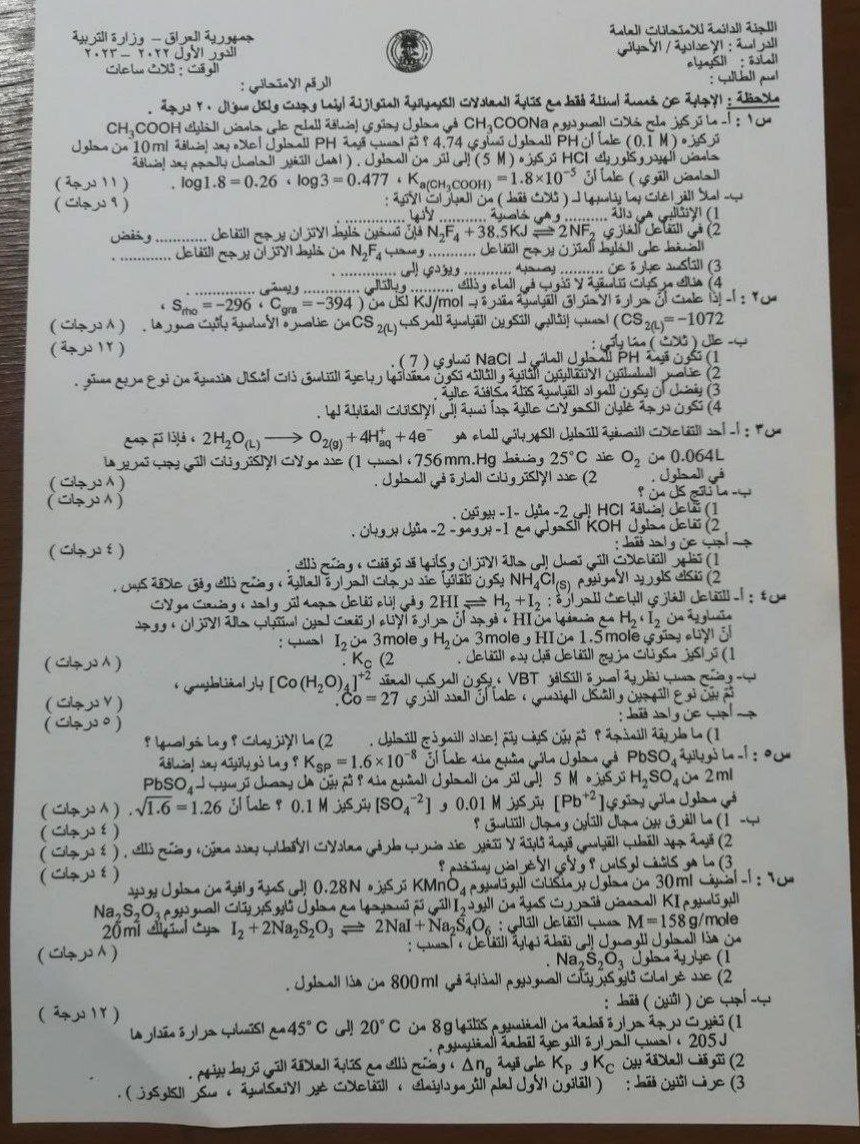 اللجنة الدائمة للامتحانات العامة
الدراسة : الإعدادية / الأحيائي
المادة : الكيمياء
اسم الطالب :
جمهورية العراق – وزارة التربية
الدور الأول ٢٠٢٢ – ٢٠٢٣
الوقت : ثلاث ساعات
الرقم الامتحاني :
ملاحظة : الإجابة عن خمسة أسئلة فقط مع كتابة المعادلات الكيميائية المتوازنة أينما وجدت ولكل سؤال ٢٠ درجة .
س١ : أ- ما تركيز ملح خلات الصوديوم CH₃COONa في محلول يحتوي إضافة للملح على حامض الخليك CH₃COOH
تركيزه ( 0.1 M ) علماً أن PH للمحلول تساوي 4.74 ؟ ثم احسب قيمة PH للمحلول أعلاه بعد إضافة 10 ml من محلول
حامض الهيدروكلوريك HCl تركيزه ( 5 M ) إلى لتر من المحلول . ( اهمل التغير الحاصل بالحجم بعد إضافة
الحامض القوي ) علماً أن Ka(CH₃COOH) = 1.8×10⁻⁵ ، log3 = 0.477 ، log1.8 = 0.26 . ( ١١ درجة )
ب- املأ الفراغات بما يناسبها لـ ( ثلاث فقط ) من العبارات الآتية : ( ٩ درجات )
1) الإنثالبي هي دالة .......... وهي خاصية .......... لأنها .............. .
2) في التفاعل الغازي N₂F₄ + 38.5KJ ⇌ 2NF₂ فإن تسخين خليط الاتزان يرجح التفاعل ............ وخفض
الضغط على الخليط المتزن يرجح التفاعل ............ وسحب N₂F₄ من خليط الاتزان يرجح التفاعل ............ .
3) التأكسد عبارة عن .......... يصحبه .......... ويؤدي إلى .............. .
4) هناك مركبات تناسقية لا تذوب في الماء وذلك .......... وبالتالي ............ ويسمى .............. .
س٢ : أ- إذا علمت أن حرارة الاحتراق القياسية مقدرة بـ KJ/mol لكل من ( Cgra = −394 ، Srho = −296 ،
CS₂(L) = −1072 ) احسب إنثالبي التكوين القياسية للمركب CS₂(L) من عناصره الأساسية بأثبت صورها . ( ٨ درجات )
ب- علل ( ثلاث ) مما يأتي : ( ١٢ درجة )
1) تكون قيمة PH للمحلول المائي لـ NaCl تساوي ( 7 ) .
2) عناصر السلسلتين الانتقاليتين الثانية والثالثه تكون معقداتها رباعية التناسق ذات أشكال هندسية من نوع مربع مستو .
3) يفضل أن يكون للمواد القياسية كتلة مكافئة عالية .
4) تكون درجة غليان الكحولات عالية جداً نسبة إلى الإلكانات المقابلة لها .
س٣ : أ- أحد التفاعلات النصفية للتحليل الكهربائي للماء هو 2H₂O(L) ⟶ O₂(g) + 4H⁺aq + 4e⁻ ، فإذا تم جمع
0.064L من O₂ عند 25°C وضغط 756 mm.Hg ، احسب 1) عدد مولات الإلكترونات التي يجب تمريرها
في المحلول . 2) عدد الإلكترونات المارة في المحلول . ( ٨ درجات )
ب- ما ناتج كل من ؟ ( ٨ درجات )
1) تفاعل إضافة HCl إلى 2- مثيل -1- بيوتين .
2) تفاعل محلول KOH الكحولي مع 1- برومو- 2- مثيل بروبان .
جـ- أجب عن واحد فقط : ( ٤ درجات )
1) تظهر التفاعلات التي تصل إلى حالة الاتزان وكأنها قد توقفت ، وضّح ذلك .
2) تفكك كلوريد الأمونيوم NH₄Cl(S) يكون تلقائياً عند درجات الحرارة العالية ، وضّح ذلك وفق علاقة كبس .
س٤ : أ- للتفاعل الغازي الباعث للحرارة : 2HI ⇌ H₂ + I₂ وفي إناء تفاعل حجمه لتر واحد ، وضعت مولات
متساوية من H₂ ، I₂ مع ضعفها من HI ، فوجد أن حرارة الإناء ارتفعت لحين استتباب حالة الاتزان ، ووجد
أن الإناء يحتوي 1.5 mole من HI و 3mole من H₂ و 3mole من I₂ احسب :
1) تراكيز مكونات مزيج التفاعل قبل بدء التفاعل . 2) KC . ( ٨ درجات )
ب- وضّح حسب نظرية أصرة التكافؤ VBT ، يكون المركب المعقد [Co(H₂O)₄]⁺² بارامغناطيسي ،
ثم بيّن نوع التهجين والشكل الهندسي ، علماً أن العدد الذري Co = 27 . ( ٧ درجات )
جـ- أجب عن واحد فقط : ( ٥ درجات )
1) ما طريقة النمذجة ؟ ثم بيّن كيف يتم إعداد النموذج للتحليل . 2) ما الإنزيمات ؟ وما خواصها ؟
س٥ : أ- ما ذوبانية PbSO₄ في محلول مائي مشبع منه علماً أن KSP = 1.6×10⁻⁸ ؟ وما ذوبانيته بعد إضافة
2 ml من H₂SO₄ تركيزه 5 M إلى لتر من المحلول المشبع منه ؟ ثم بيّن هل يحصل ترسيب لـ PbSO₄
في محلول مائي يحتوي [Pb⁺²] بتركيز 0.01 M و [SO₄⁻²] بتركيز 0.1 M ؟ علماً أن √1.6 = 1.26 . ( ٨ درجات )
ب- 1) ما الفرق بين مجال التأين ومجال التناسق ؟ ( ٤ درجات )
2) قيمة جهد القطب القياسي قيمة ثابتة لا تتغير عند ضرب طرفي معادلات الأقطاب بعدد معيّن، وضّح ذلك . ( ٤ درجات )
3) ما هو كاشف لوكاس ؟ ولأي الأغراض يستخدم ؟ ( ٤ درجات )
س٦ : أ- أضيف 30 ml من محلول برمنكنات البوتاسيوم KMnO₄ تركيزه 0.28N إلى كمية وافية من محلول يوديد
البوتاسيوم KI المحمض فتحررت كمية من اليود I₂ التي تم تسحيحها مع محلول ثايوكبريتات الصوديوم Na₂S₂O₃
M = 158 g/mole حسب التفاعل التالي : I₂ + 2Na₂S₂O₃ ⇌ 2NaI + Na₂S₄O₆ حيث أستهلك 20 ml
من هذا المحلول للوصول إلى نقطة نهاية التفاعل ، احسب :
1) عيارية محلول Na₂S₂O₃ . ( ٨ درجات )
2) عدد غرامات ثايوكبريتات الصوديوم المذابة في 800 ml من هذا المحلول .
ب- أجب عن ( اثنين ) فقط : ( ١٢ درجة )
1) تغيرت درجة حرارة قطعة من المغنسيوم كتلتها 8g من 20°C إلى 45°C مع اكتساب حرارة مقدارها
205J ، احسب الحرارة النوعية لقطعة المغنيسيوم .
2) تتوقف العلاقة بين KC و KP على قيمة Δng ، وضّح ذلك مع كتابة العلاقة التي تربط بينهم .
3) عرف اثنين فقط : ( القانون الأول لعلم الثرموداينمك ، التفاعلات غير الانعكاسية ، سكر الكلوكوز ) .